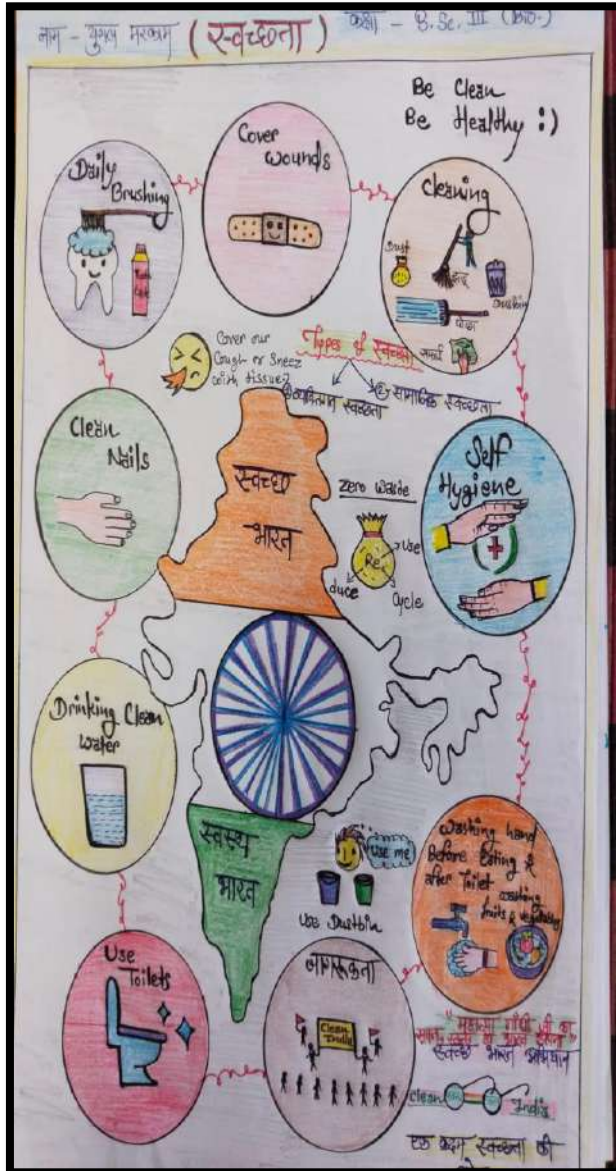 नाम - युगल मरकाम (स्वच्छता) कक्षा - B.Sc. III (Bio.)
Be Clean
Be Healthy :)
Daily
Brushing
Cover
Wounds
Cleaning
Dust
झाड़ू
Dustbin
पोछा
Cover our
Cough or Sneez
with tissue
Types of स्वच्छता
व्यक्तिगत स्वच्छता
सामाजिक स्वच्छता
Clean
Nails
स्वच्छ
भारत
Zero Waste
Re
use
duce
Cycle
Self
Hygiene
Drinking Clean
Water
स्वस्थ
भारत
Use me
Use Dustbin
Washing hand
Before Eating &
after Toilet
washing
fruits & vegetables
Use
Toilets
जागरूकता
Clean
India
"महात्मा गाँधी जी का
भारत
स्वच्छ भारत अभियान
Clean
India
एक कदम स्वच्छता की